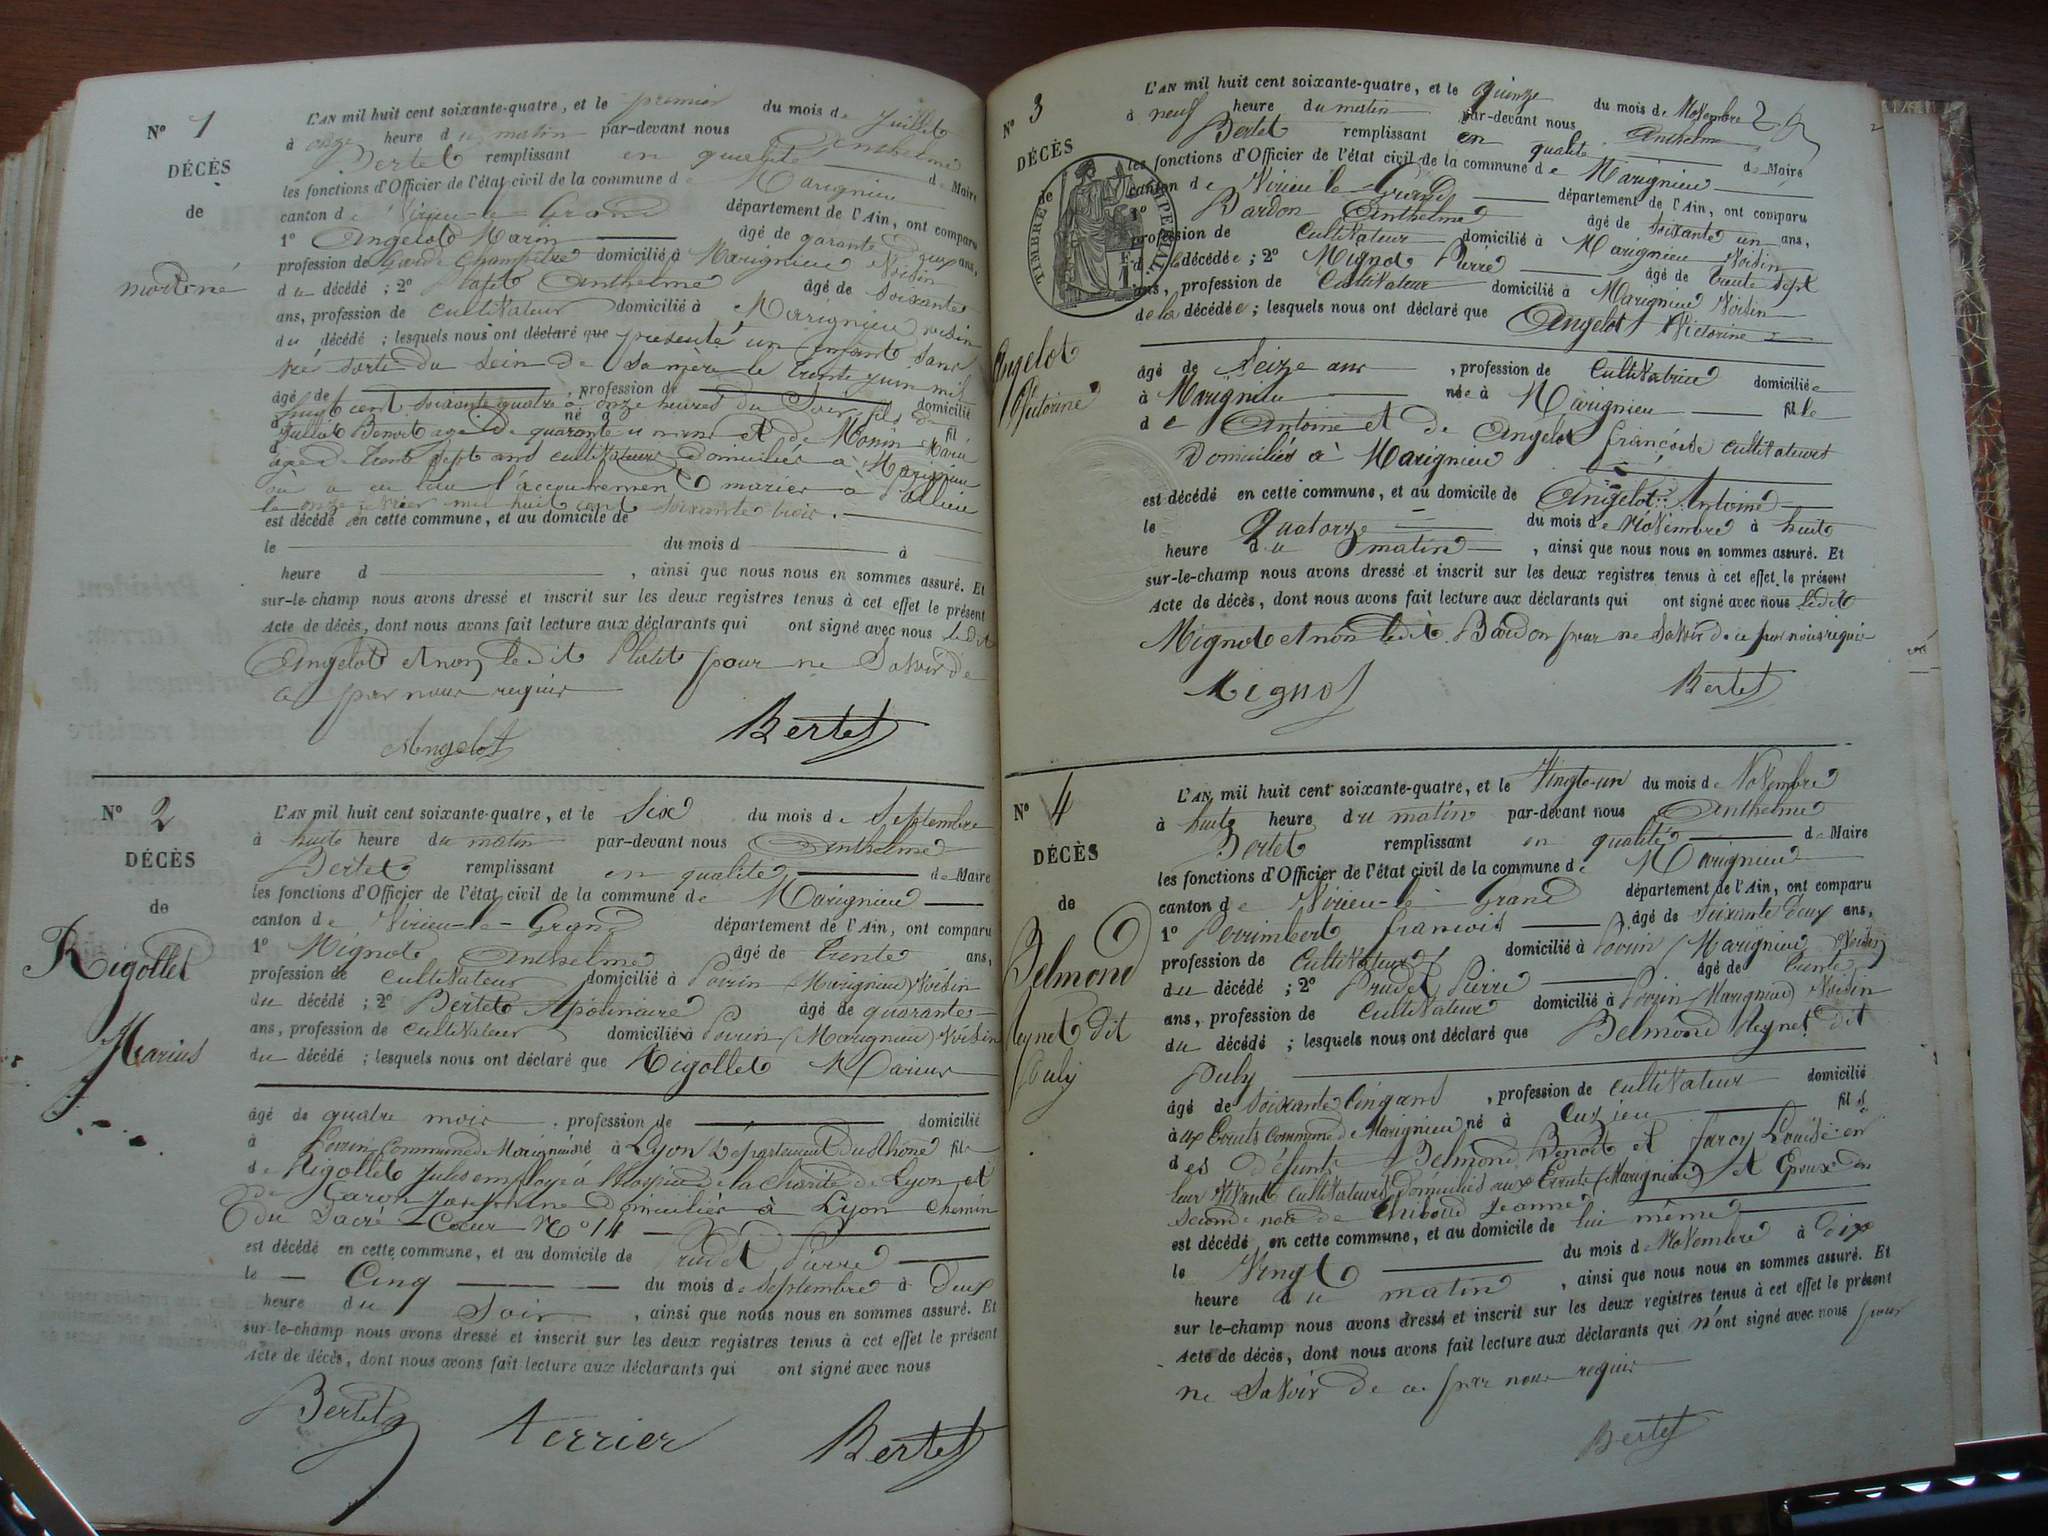 N° 1
DÉCÈS
de
mortené
L'AN mil huit cent soixante-quatre, et le premier du mois de Juillet
à onze heure du matin par-devant nous Anthelme
Bertet remplissant en qualité de Maire
les fonctions d'Officier de l'état civil de la commune de Marignieu
canton de Virieu-le-Grand département de l'Ain, ont comparu
1° Angelot Marin âgé de quarante deux ans,
profession de Garde Champêtre domicilié à Marignieu Voisin
du décédé ; 2° Anthelme âgé de soixante
ans, profession de cultivateur domicilié à Marignieu voisin
du décédé ; lesquels nous ont déclaré que présenté un enfant sans
vie sorte du sein de sa mère le trente juin mil
âgé de , profession de domicilié
huit cent soixante quatre à onze heures du Soir, fils de
à né à fil
Juliet Benoit agé de quarante et de Monin Marie
d
age de trente sept ans cultivateurs domiciliés à Marignieu
où a eu lieu l'accouchement mariés à Pollieu
le onze mil huit cent soixante trois.
est décédé en cette commune, et au domicile de
le du mois d à
heure d , ainsi que nous nous en sommes assuré. Et
sur-le-champ nous avons dressé et inscrit sur les deux registres tenus à cet effet le présent
Acte de décès, dont nous avons fait lecture aux déclarants qui ont signé avec nous ledit
Angelot et non ledit pour ne Savoir de
ce par nous requis
Angelot Bertet
N° 2
DÉCÈS
de
Rigollet
Marius
L'AN mil huit cent soixante-quatre, et le Six du mois de Septembre
à huit heure du matin par-devant nous Anthelme
Bertet remplissant en qualité de Maire
les fonctions d'Officier de l'état civil de la commune de Marignieu
canton de Virieu-le-Grand département de l'Ain, ont comparu
1° Mignot Anthelme âgé de trente ans,
profession de cultivateur domicilié à Poirin (Marignieu) Voisin
du décédé ; 2° Bertet Apolinaire âgé de quarante
ans, profession de cultivateur domicilié à Poirin (Marignieu) Voisin
du décédé ; lesquels nous ont déclaré que Rigollet Marius
âgé de quatre mois , profession de domicilié
à Poirin Commune de Marignieu né à Lyon Département du Rhône fils
de Rigollet Jules employé à l'hospice de la charité de Lyon et
de Joséphine domiciliés à Lyon chemin
du Sacré-Cœur N° 14
est décédé en cette commune, et au domicile de Prudet Pierre
le Cinq du mois de Septembre à Deux
heure du Soir , ainsi que nous nous en sommes assuré. Et
sur-le-champ nous avons dressé et inscrit sur les deux registres tenus à cet effet le présent
Acte de décès, dont nous avons fait lecture aux déclarants qui ont signé avec nous
Bertet Bertet
N° 3
DÉCÈS
de
TIMBRE IMPÉRIAL
Angelot
Victorine
L'AN mil huit cent soixante-quatre, et le quinze du mois de Novembre
à neuf heure du matin par-devant nous Anthelme
Bertet remplissant en qualité de Maire
les fonctions d'Officier de l'état civil de la commune de Marignieu
canton de Virieu-le-Grand département de l'Ain, ont comparu
1° Bardon Anthelme âgé de soixante un ans,
profession de Cultivateur domicilié à Marignieu Voisin
de la décédée ; 2° Mignot Pierre âgé de trente sept
ans, profession de Cultivateur domicilié à Marignieu Voisin
de la décédée ; lesquels nous ont déclaré que Angelot Victorine
âgé de Seize ans , profession de Cultivatrice domiciliée
à Marignieu née à Marignieu fille
de Antoine et de Angelot françoise cultivateurs
Domiciliés à Marignieu
est décédé en cette commune, et au domicile de Angelot Antoine
le Quatorze du mois de Novembre à huit
heure du matin , ainsi que nous nous en sommes assuré. Et
sur-le-champ nous avons dressé et inscrit sur les deux registres tenus à cet effet le présent
Acte de décès, dont nous avons fait lecture aux déclarants qui ont signé avec nous ledit
Mignot et non ledit Bardon pour ne Savoir de ce par nous requis
Mignot Bertet
N° 4
DÉCÈS
de
Belmond
Reynet dit
July
L'AN mil huit cent soixante-quatre, et le Vingt-un du mois de Novembre
à huit heure du matin par-devant nous Anthelme
Bertet remplissant en qualité de Maire
les fonctions d'Officier de l'état civil de la commune de Marignieu
canton de Virieu-le-Grand département de l'Ain, ont comparu
1° Perrimbert francois âgé de soixante deux ans,
profession de Cultivateur domicilié à Poirin (Marignieu Voisin)
du décédé ; 2° Prudet Pierre âgé de trente
ans, profession de Cultivateur domicilié à Poirin (Marignieu) Voisin
du décédé ; lesquels nous ont déclaré que Belmond Reynet dit
July
âgé de soixante cinq ans , profession de cultivateur domicilié
à Commune de Marignieu né à Cuzieu fils
des Défunts Belmond Benoit et Louise en
leur vivant cultivateurs domiciliés aux (Marignieu) et Epoux en
seconde noce de Thiboud Jeanne
est décédé en cette commune, et au domicile de lui même
le Vingt du mois de Novembre à dix
heure du matin , ainsi que nous nous en sommes assuré. Et
sur le-champ nous avons dressé et inscrit sur les deux registres tenus à cet effet le présent
Acte de décès, dont nous avons fait lecture aux déclarants qui n'ont signé avec nous pour
ne Savoir de ce par nous requis
Bertet